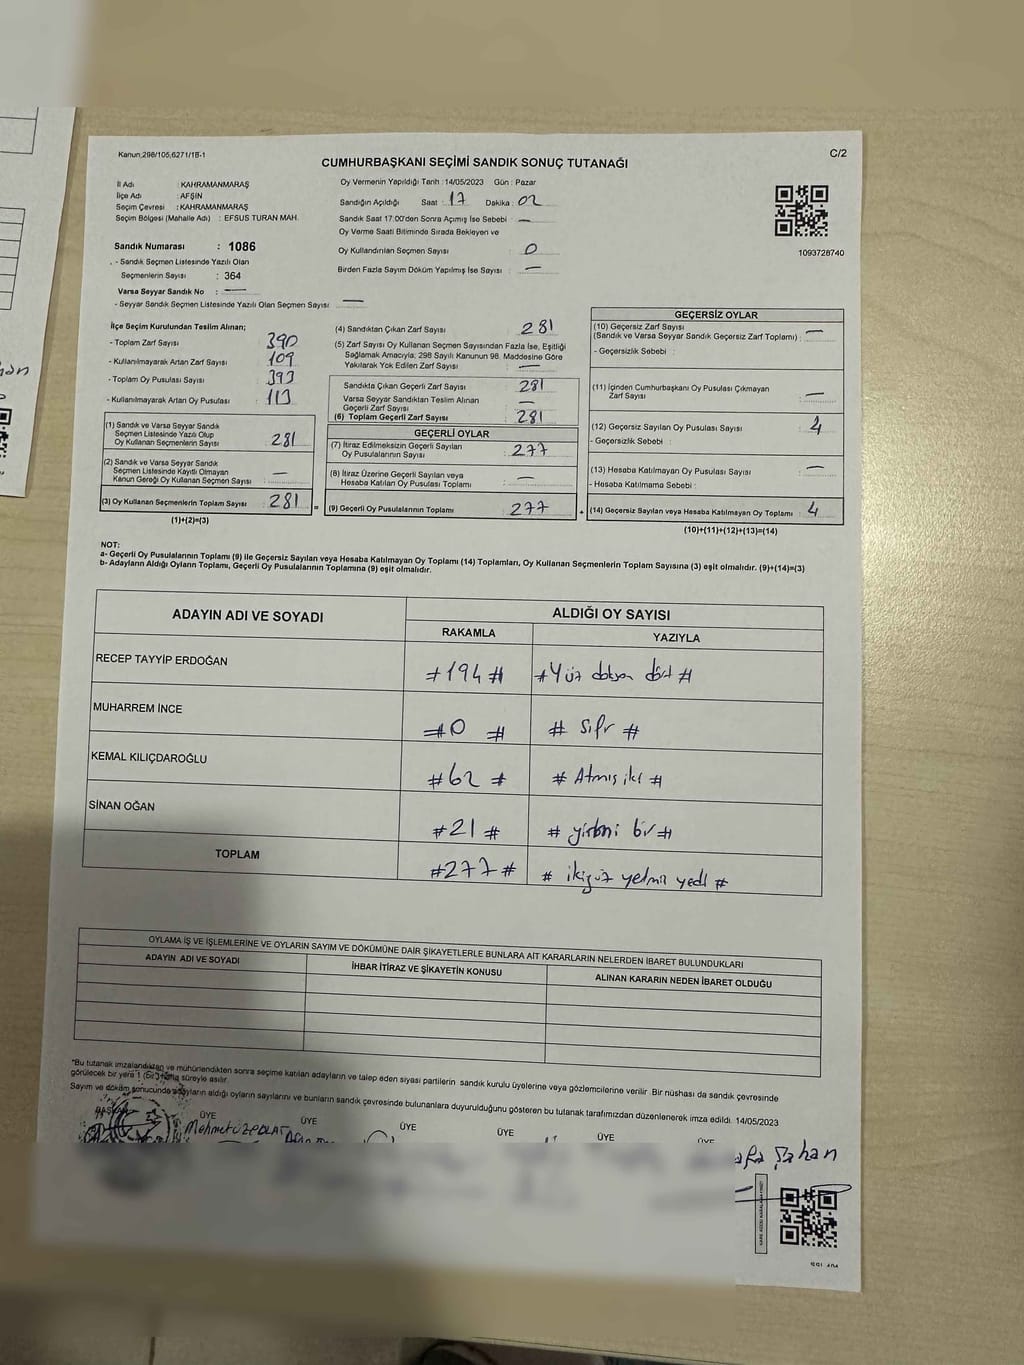 Kanun:298/105,6271/1B-1
C/2
CUMHURBAŞKANI SEÇİMİ SANDIK SONUÇ TUTANAĞI
İl Adı : KAHRAMANMARAŞ
İlçe Adı : AFŞİN
Seçim Çevresi : KAHRAMANMARAŞ
Seçim Bölgesi (Mahalle Adı) : EFSUS TURAN MAH.
Sandık Numarası : 1086
- Sandık Seçmen Listesinde Yazılı Olan
Seçmenlerin Sayısı : 364
Varsa Seyyar Sandık No : —
- Seyyar Sandık Seçmen Listesinde Yazılı Olan Seçmen Sayısı : —
Oy Vermenin Yapıldığı Tarih : 14/05/2023 Gün : Pazar
Sandığın Açıldığı Saat : 17 Dakika : 02
Sandık Saat 17:00'den Sonra Açımış İse Sebebi : —
Oy Verme Saati Bitiminde Sırada Bekleyen ve
Oy Kullandırılan Seçmen Sayısı : 0
Birden Fazla Sayım Döküm Yapılmış İse Sayısı : —
1093728740
İlçe Seçim Kurulundan Teslim Alınan;
- Toplam Zarf Sayısı : 390
- Kullanılmayarak Artan Zarf Sayısı : 109
- Toplam Oy Pusulası Sayısı : 393
- Kullanılmayarak Artan Oy Pusulası : 113
(1) Sandık ve Varsa Seyyar Sandık
Seçmen Listesinde Yazılı Olup
Oy Kullanan Seçmenlerin Sayısı : 281
(2) Sandık ve Varsa Seyyar Sandık
Seçmen Listesinde Kayıtlı Olmayan
Kanun Gereği Oy Kullanan Seçmen Sayısı : —
(3) Oy Kullanan Seçmenlerin Toplam Sayısı : 281
(1)+(2)=(3)
(4) Sandıktan Çıkan Zarf Sayısı : 281
(5) Zarf Sayısı Oy Kullanan Seçmen Sayısından Fazla İse, Eşitliği
Sağlamak Amacıyla; 298 Sayılı Kanunun 98. Maddesine Göre
Yakılarak Yok Edilen Zarf Sayısı : —
Sandıkta Çıkan Geçerli Zarf Sayısı : 281
Varsa Seyyar Sandıktan Teslim Alınan
Geçerli Zarf Sayısı : —
(6) Toplam Geçerli Zarf Sayısı : 281
GEÇERLİ OYLAR
(7) İtiraz Edilmeksizin Geçerli Sayılan
Oy Pusulalarının Sayısı : 277
(8) İtiraz Üzerine Geçerli Sayılan veya
Hesaba Katılan Oy Pusulası Toplamı : —
= (9) Geçerli Oy Pusulalarının Toplamı : 277
GEÇERSİZ OYLAR
(10) Geçersiz Zarf Sayısı
(Sandık ve Varsa Seyyar Sandık Geçersiz Zarf Toplamı) : —
- Geçersizlik Sebebi :
(11) İçinden Cumhurbaşkanı Oy Pusulası Çıkmayan
Zarf Sayısı : —
(12) Geçersiz Sayılan Oy Pusulası Sayısı : 4
- Geçersizlik Sebebi :
(13) Hesaba Katılmayan Oy Pusulası Sayısı : —
- Hesaba Katılmama Sebebi :
+ (14) Geçersiz Sayılan veya Hesaba Katılmayan Oy Toplamı : 4
(10)+(11)+(12)+(13)=(14)
NOT:
a- Geçerli Oy Pusulalarının Toplamı (9) ile Geçersiz Sayılan veya Hesaba Katılmayan Oy Toplamı (14) Toplamları, Oy Kullanan Seçmenlerin Toplam Sayısına (3) eşit olmalıdır. (9)+(14)=(3)
b- Adayların Aldığı Oyların Toplamı, Geçerli Oy Pusulalarının Toplamına (9) eşit olmalıdır.
ADAYIN ADI VE SOYADI
ALDIĞI OY SAYISI
RAKAMLA YAZIYLA
RECEP TAYYİP ERDOĞAN #194# #Yüz doksan dört#
MUHARREM İNCE #0# #Sıfır#
KEMAL KILIÇDAROĞLU #62# #Atmış iki#
SİNAN OĞAN #21# #yirmi bir#
TOPLAM #277# #ikiyüz yetmiş yedi#
OYLAMA İŞ VE İŞLEMLERİNE VE OYLARIN SAYIM VE DÖKÜMÜNE DAİR ŞİKAYETLERLE BUNLARA AİT KARARLARIN NELERDEN İBARET BULUNDUKLARI
ADAYIN ADI VE SOYADI İHBAR İTİRAZ VE ŞİKAYETİN KONUSU ALINAN KARARIN NEDEN İBARET OLDUĞU
*Bu tutanak imzalandıktan ve mühürlendikten sonra seçime katılan adayların ve talep eden siyasi partilerin sandık kurulu üyelerine veya gözlemcilerine verilir. Bir nüshası da sandık çevresinde
görülecek bir yere 1 (bir) hafta süreyle asılır.
Sayım ve döküm sonucunda adayların aldığı oyların sayılarını ve bunların sandık çevresinde bulunanlara duyurulduğunu gösteren bu tutanak tarafımızdan düzenlenerek imza edildi. 14/05/2023
BAŞKAN ÜYE ÜYE ÜYE ÜYE ÜYE ÜYE
Mehmet ÖZPOLAT
Şahan